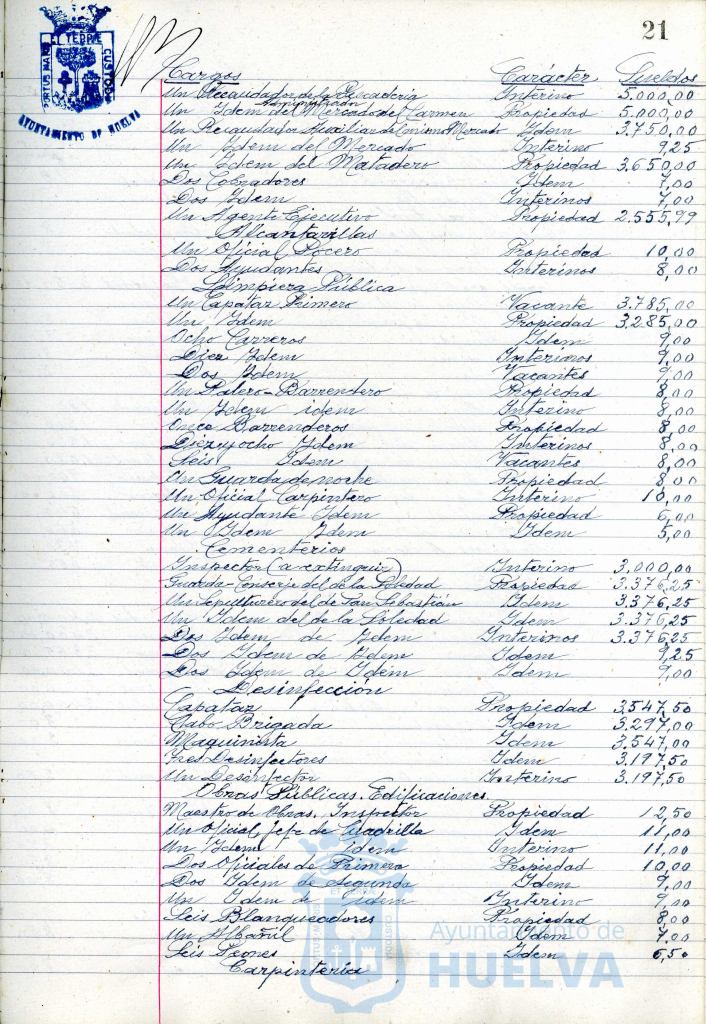 21
PORTUS MARIS ET TERRE CUSTODIA
AYUNTAMIENTO DE HUELVA
Cargos Carácter Sueldos
Un Recaudador de la Pescadería Interino 5.000,00
Administrador
Un Idem del Mercado del Carmen Propiedad 5.000,00
Un Recaudador Auxiliar del mismo Mercado Idem 3.750,00
Un Idem del Mercado Interino 9,25
Un Idem del Matadero Propiedad 3.650,00
Dos Cobradores Idem 7,00
Dos Idem Interinos 7,00
Un Agente Ejecutivo Propiedad 2.555,99
Alcantarillas
Un Oficial Pocero Propiedad 10,00
Dos Ayudantes Interinos 8,00
Limpieza Pública
Un Capataz Primero Vacante 3.785,00
Un Idem Propiedad 3.285,00
Ocho Carreros Idem 9,00
Diez Idem Interinos 9,00
Dos Idem Vacantes 9,00
Un Palero-Barrendero Propiedad 8,00
Un Idem idem Interino 8,00
Once Barrenderos Propiedad 8,00
Diez y ocho Idem Interinos 8,00
Seis Idem Vacantes 8,00
Un Guarda de noche Propiedad 8,00
Un Oficial Carpintero Interino 10,00
Un Ayudante Idem Propiedad 6,00
Un Idem Idem Idem 5,00
Cementerios
Inspector (a extinguir) Interino 3.000,00
Guarda-Conserje del de la Soledad Propiedad 3.376,25
Un Sepulturero del de San Sebastián Idem 3.376,25
Un Idem del de la Soledad Idem 3.376,25
Dos Idem de Idem Interinos 3.376,25
Dos Idem de Idem Idem 9,25
Dos Idem de Idem Idem 9,00
Desinfección
Capataz Propiedad 3.547,50
Cabo Brigada Idem 3.297,00
Maquinista Idem 3.547,00
Tres Desinfectores Idem 3.197,50
Un Desinfector Interino 3.197,50
Obras Públicas. Edificaciones.
Maestro de Obras. Inspector Propiedad 12,50
Un Oficial, jefe de Cuadrilla Idem 11,00
Un Idem idem Interino 11,00
Dos Oficiales de Primera Propiedad 10,00
Dos Idem de Segunda Idem 9,00
Un Idem de Idem Interino 9,00
Seis Blanqueadores Propiedad 8,00
Un Albañil Idem 7,00
Seis Peones Idem 6,50
Carpintería
Ayuntamiento de
HUELVA